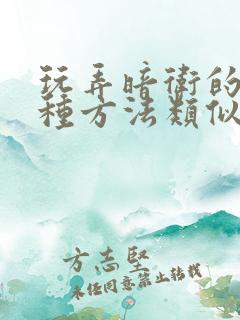 玩弄暗衛的
種方法類似
方志堅
未經同意禁止轉載